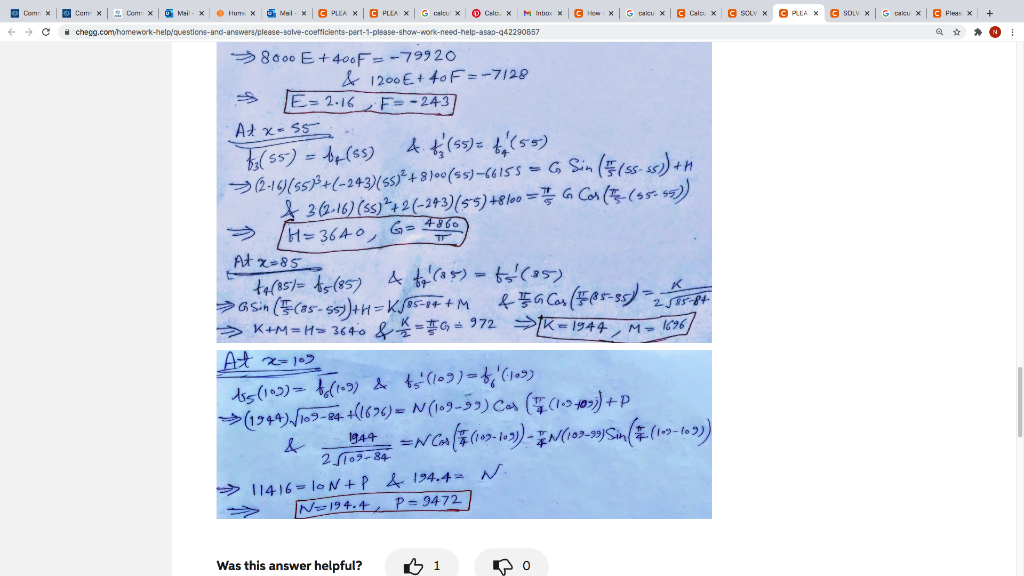 Comm
Comm
Comm
Mail -
Home
Mail -
PLEA
PLEA
calcul
Calcu
Inbox
How
calcul
Calcu
SOLV
PLEA
SOLV
calcul
Pleas
chegg.com/homework-help/questions-and-answers/please-solve-coefficients-part-1-please-show-work-need-help-asap-q42290857
⇒ 8000 E + 400F = -79920
& 1200E + 40F = -7128
⇒ E = 2.16 , F = -243
At x = 55
f₃(55) = f₄(55) & f₃'(55) = f₄'(55)
⇒ (2.16)(55)³ + (-243)(55)² + 8100(55) - 66155 = G Sin (π/5 (55-55)) + H
& 3(2.16)(55)² + 2(-243)(55) + 8100 = π/5 G Cos(π/5 (55-55))
⇒ H = 3640 , G = 4860/π
At x = 85
f₄(85) = f₅(85) & f₄'(85) = f₅'(85)
⇒ G Sin (π/5 (85-55)) + H = K√85-84 + M & π/5 G Cos (π/5 (85-55)) = K/2√85-84
⇒ K + M = H = 3640 & K/2 = π/5 G = 972 ⇒ K = 1944 , M = 1696
At x = 109
f₅(109) = f₆(109) & f₅'(109) = f₆'(109)
⇒ (1944)√109-84 + (1696) = N(109-99) Cos (π/4 (109-109)) + P
& 1944/2√109-84 = N Cos(π/4 (109-109)) - π/4 N(109-99) Sin(π/4 (109-109))
⇒ 11416 = 10N + P & 194.4 = N
⇒ N = 194.4 , P = 9472
Was this answer helpful? 1 0